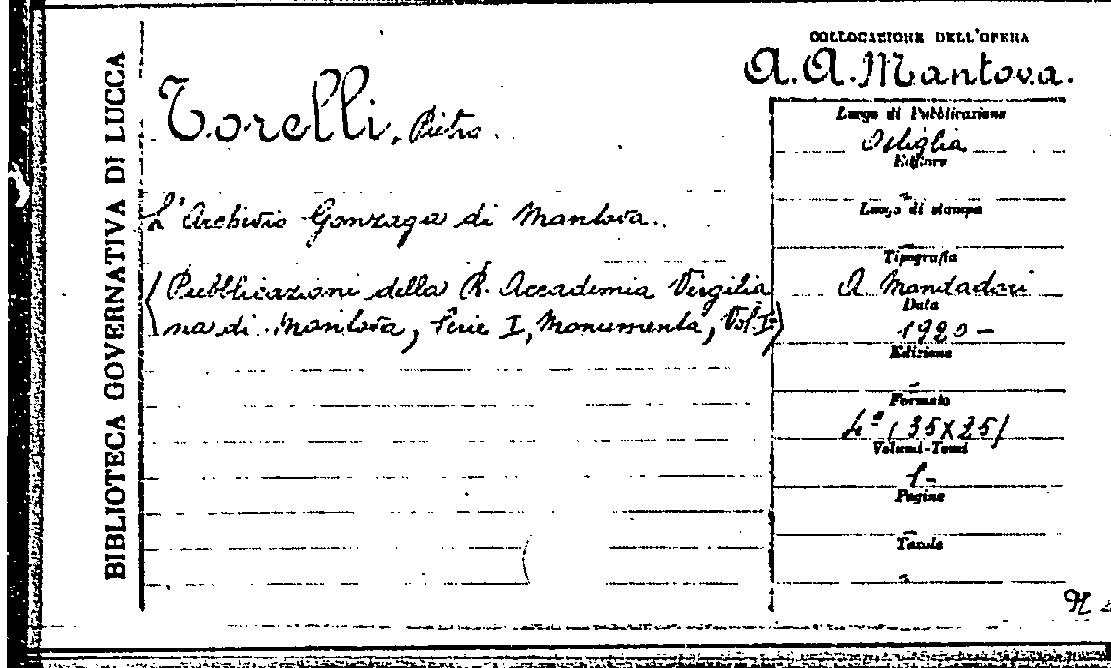 BIBLIOTECA GOVERNATIVA DI LUCCA
COLLOCAZIONE DELL'OPERA
A. A. Mantova.
Torelli, Pietro.
L'Archivio Gonzaga di Mantova.
(Pubblicazioni della R. Accademia Virgilia
na di Mantova, Serie I, Monumenta, Vol. I)
Luogo di Pubblicazione
Ostiglia
Editore
Luogo di stampa
Tipografia
A. Mondadori
Data
1920 -
Edizione
Formato
4° (35X25)
Volumi-Tomi
1 -
Pagine
Tavole